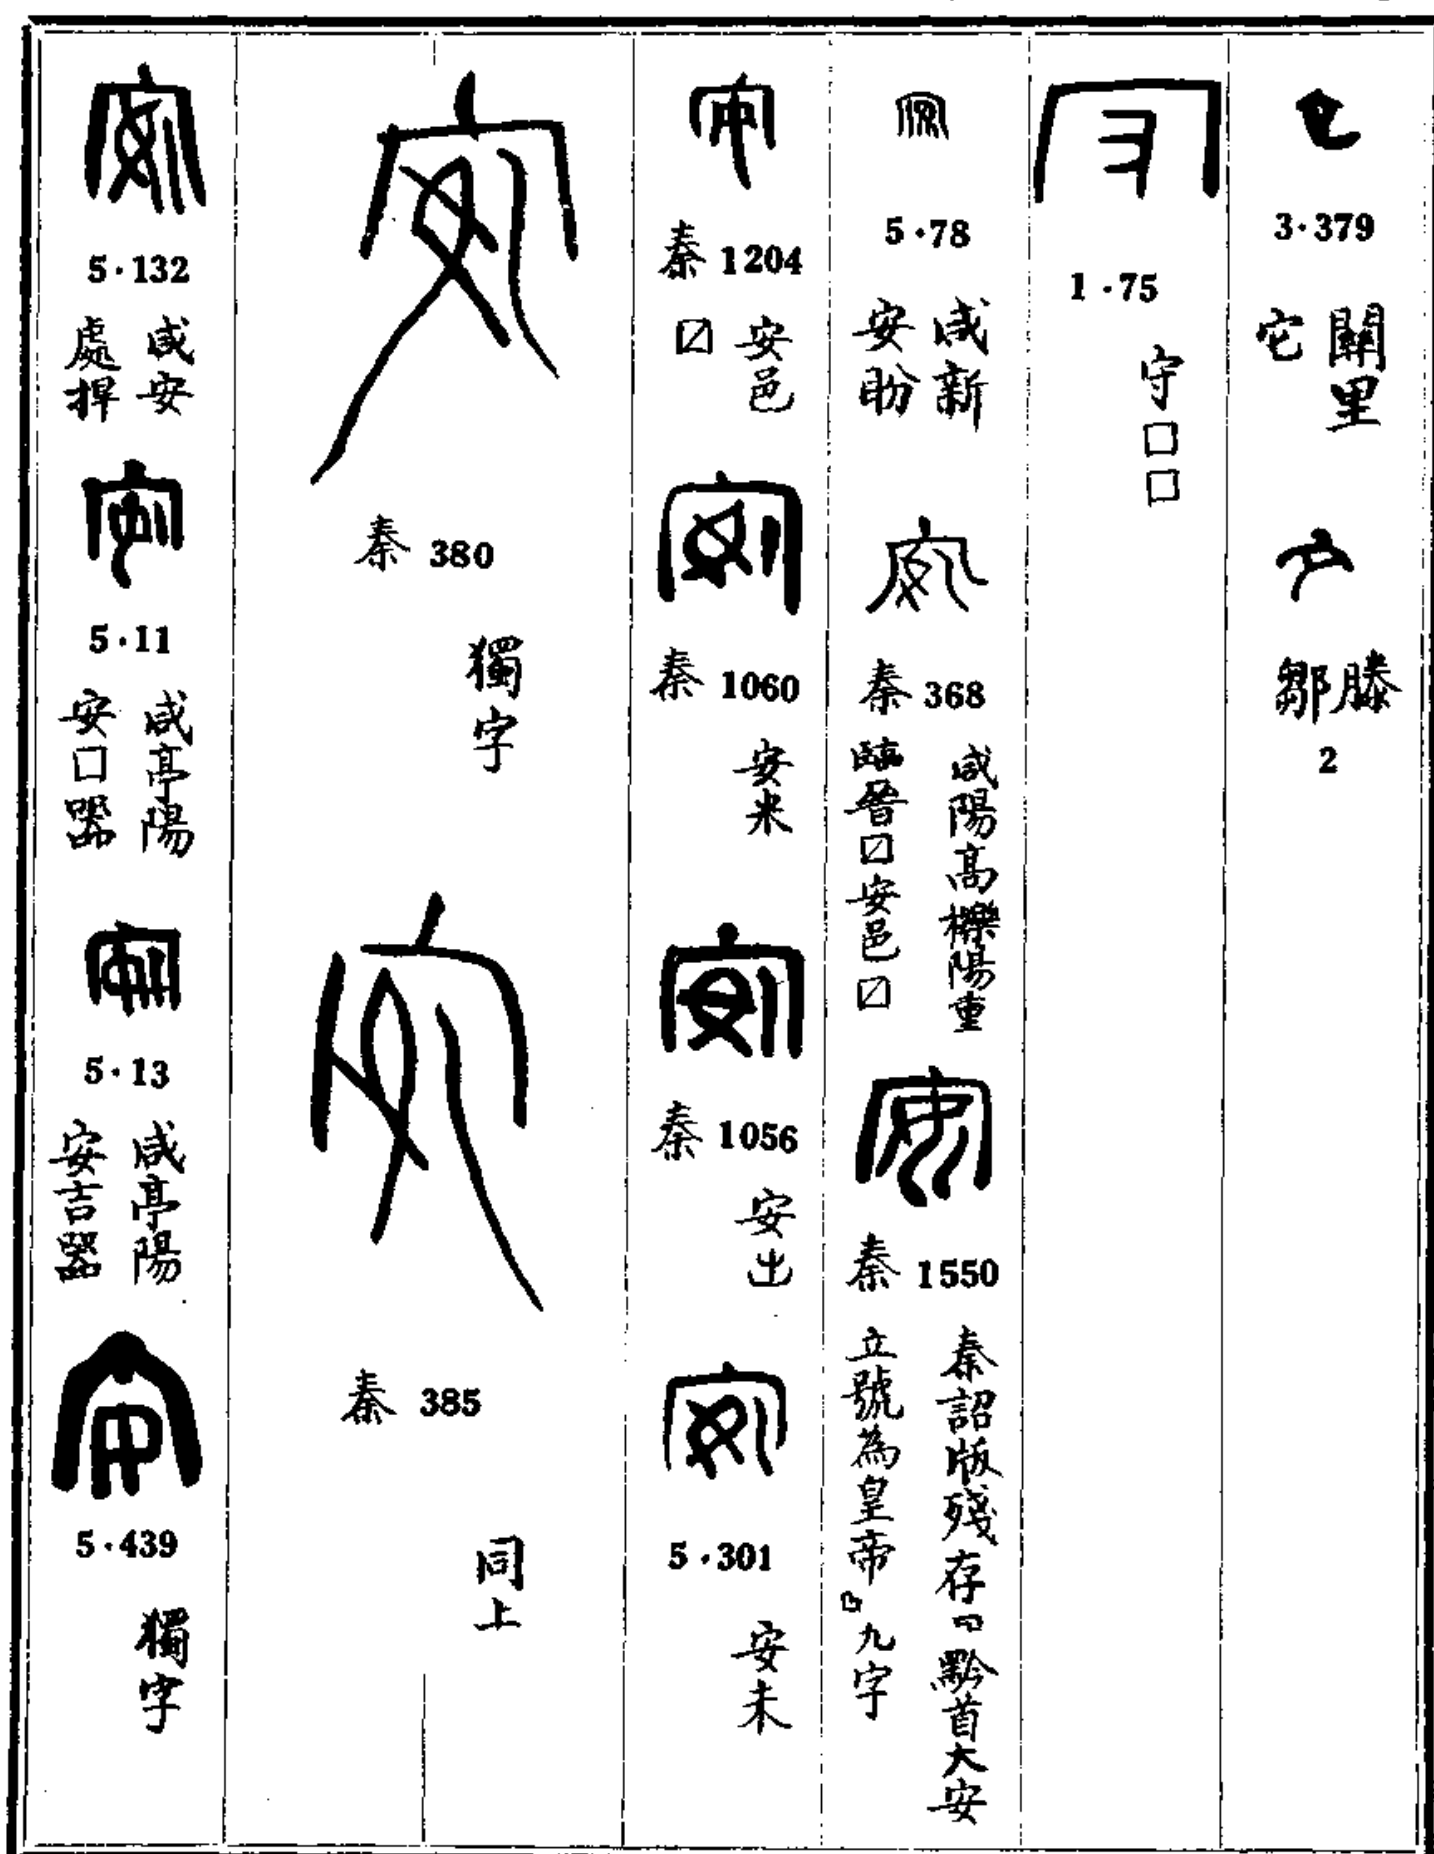 3·379
關里
它
滕
鄒
2
1·75
守□□
5·78
咸新
安盼
秦 368
咸陽高櫟陽重
臨晉〼安邑〼
秦 1550
秦詔版殘存「黔首大安
立號為皇帝」九字
秦 1204
安邑
〼
秦 1060
安米
秦 1056
安
5·301
安未
秦 380
獨字
秦 385
同上
5·132
咸安
處捍
5·11
咸亭陽
安□器
5·13
咸亭陽
安吉器
5·439
獨字